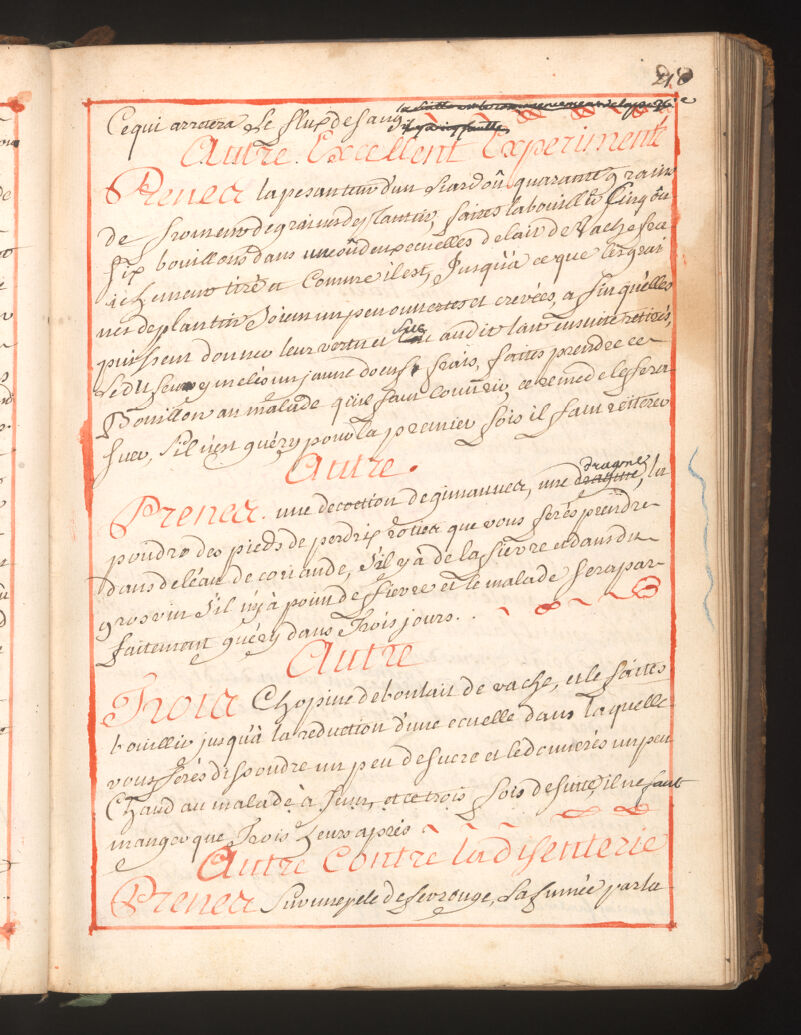 218
Ce qui arretera Le flux de sang
Autre. Excellent Experimenté
Prenez la pesanteur d'un liard oû quarante grains
de froment de graines de plantin, faites la bouillir Cinq oû
six bouillons dans une oû deux ecuelles de lait de Vache fra
ichement tiré et Comme il est, Jusqu'à ce que les grai
nes de plantin soient un peu ouvertes et crevées, a fin qu'elles
puissent donner leur vertu et suc audit lait ensuite retirés,
Le du feu et y melés un jaune doeuf frais, faites prendre ce
Bouillon au malade qu'il faut Couvrir, ce remede le fera
suer, s'il n'est guéry pour la premier fois il faut reiterer
Autre.
Prenez. une decoction de gimauvez, une dragme la
poudre des pieds de perdrix rotiez que vous ferés prendre
dans de léau de coriande, s'il y à de la fievre et dans du
gros vin s'il n'y à point de fievre et le malade sera par-
faitement guéry dans Trois jours.
Autre
Troiz Chopine de bon lait de vache, et le faites
bouillir jusqu'à la reduction d'une ecuelle dans laquelle
vous ferés dissoudre un peu de sucre et le donnerés un peu
Chaud au malade à Jeun, et ce trois fois de suitte il ne faut
manger que Trois heures aprés
Autre Contre la disenterie
Prenez Sur une pele de fer rouge, La fumée par la